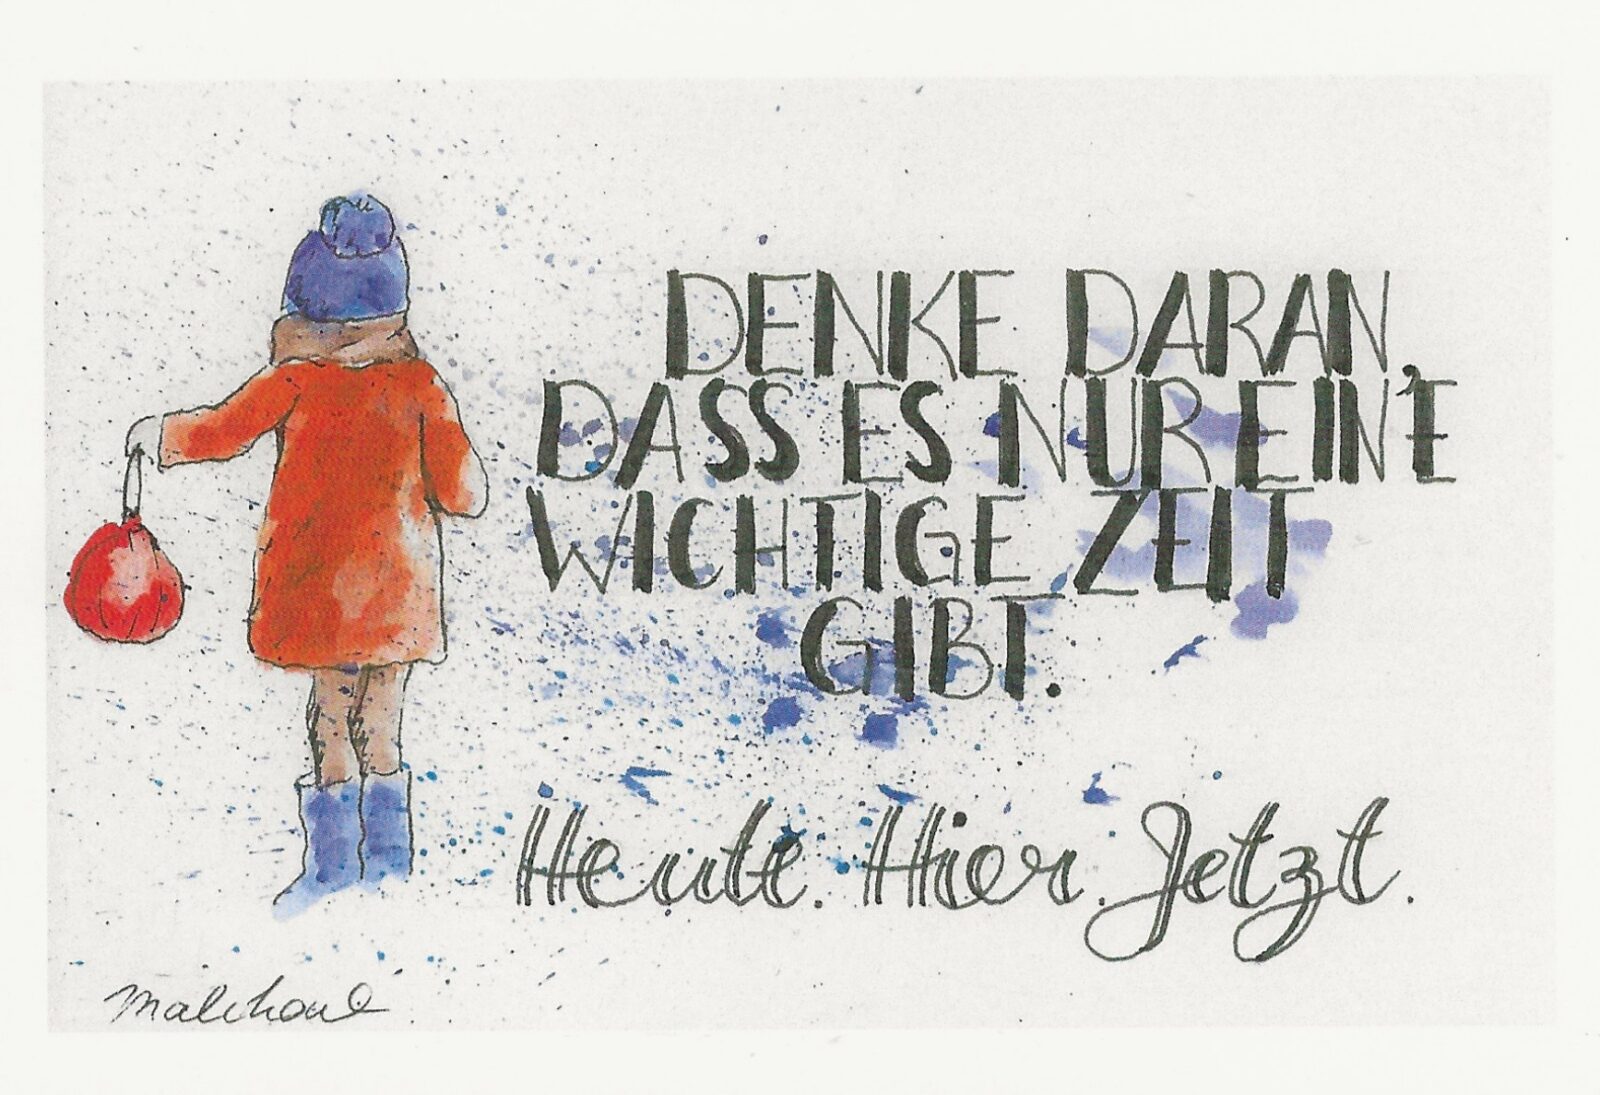 DENKE DARAN,
DASS ES NUR EINE
WICHTIGE ZEIT
GIBT.
Heute. Hier. Jetzt.